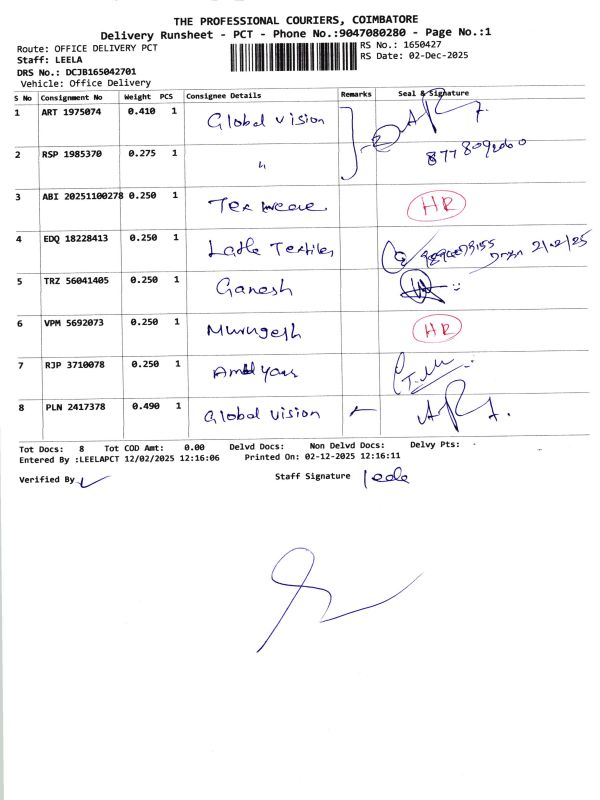 THE PROFESSIONAL COURIERS, COIMBATORE
Delivery Runsheet - PCT - Phone No.:9047080280 - Page No.:1
Route: OFFICE DELIVERY PCT
RS No.: 1650427
Staff: LEELA
RS Date: 02-Dec-2025
DRS No.: DCJB165042701
Vehicle: Office Delivery
S No Consignment No Weight PCS Consignee Details Remarks Seal & Signature
1 ART 1975074 0.410 1 Global vision
2 RSP 1985370 0.275 1 "
3 ABI 20251100278 0.250 1 HR
4 EDQ 18228413 0.250 1 Textiles
5 TRZ 56041405 0.250 1 Ganesh
6 VPM 5692073 0.250 1 Murugesh HR
7 RJP 3710078 0.250 1
8 PLN 2417378 0.490 1 Global vision
Tot Docs: 8 Tot COD Amt: 0.00 Delvd Docs: Non Delvd Docs: Delvy Pts:
Entered By :LEELAPCT 12/02/2025 12:16:06 Printed On: 02-12-2025 12:16:11
Verified By Staff Signature leela